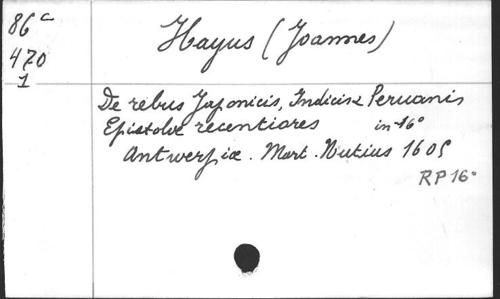 86 c
470
1
Hayus (Joannes)
De rebus Japonicis, Indicis & Peruanis
Epistolæ recentiores in-16°
Antwerpiæ. Mart. Nutius 1605
RP 16°